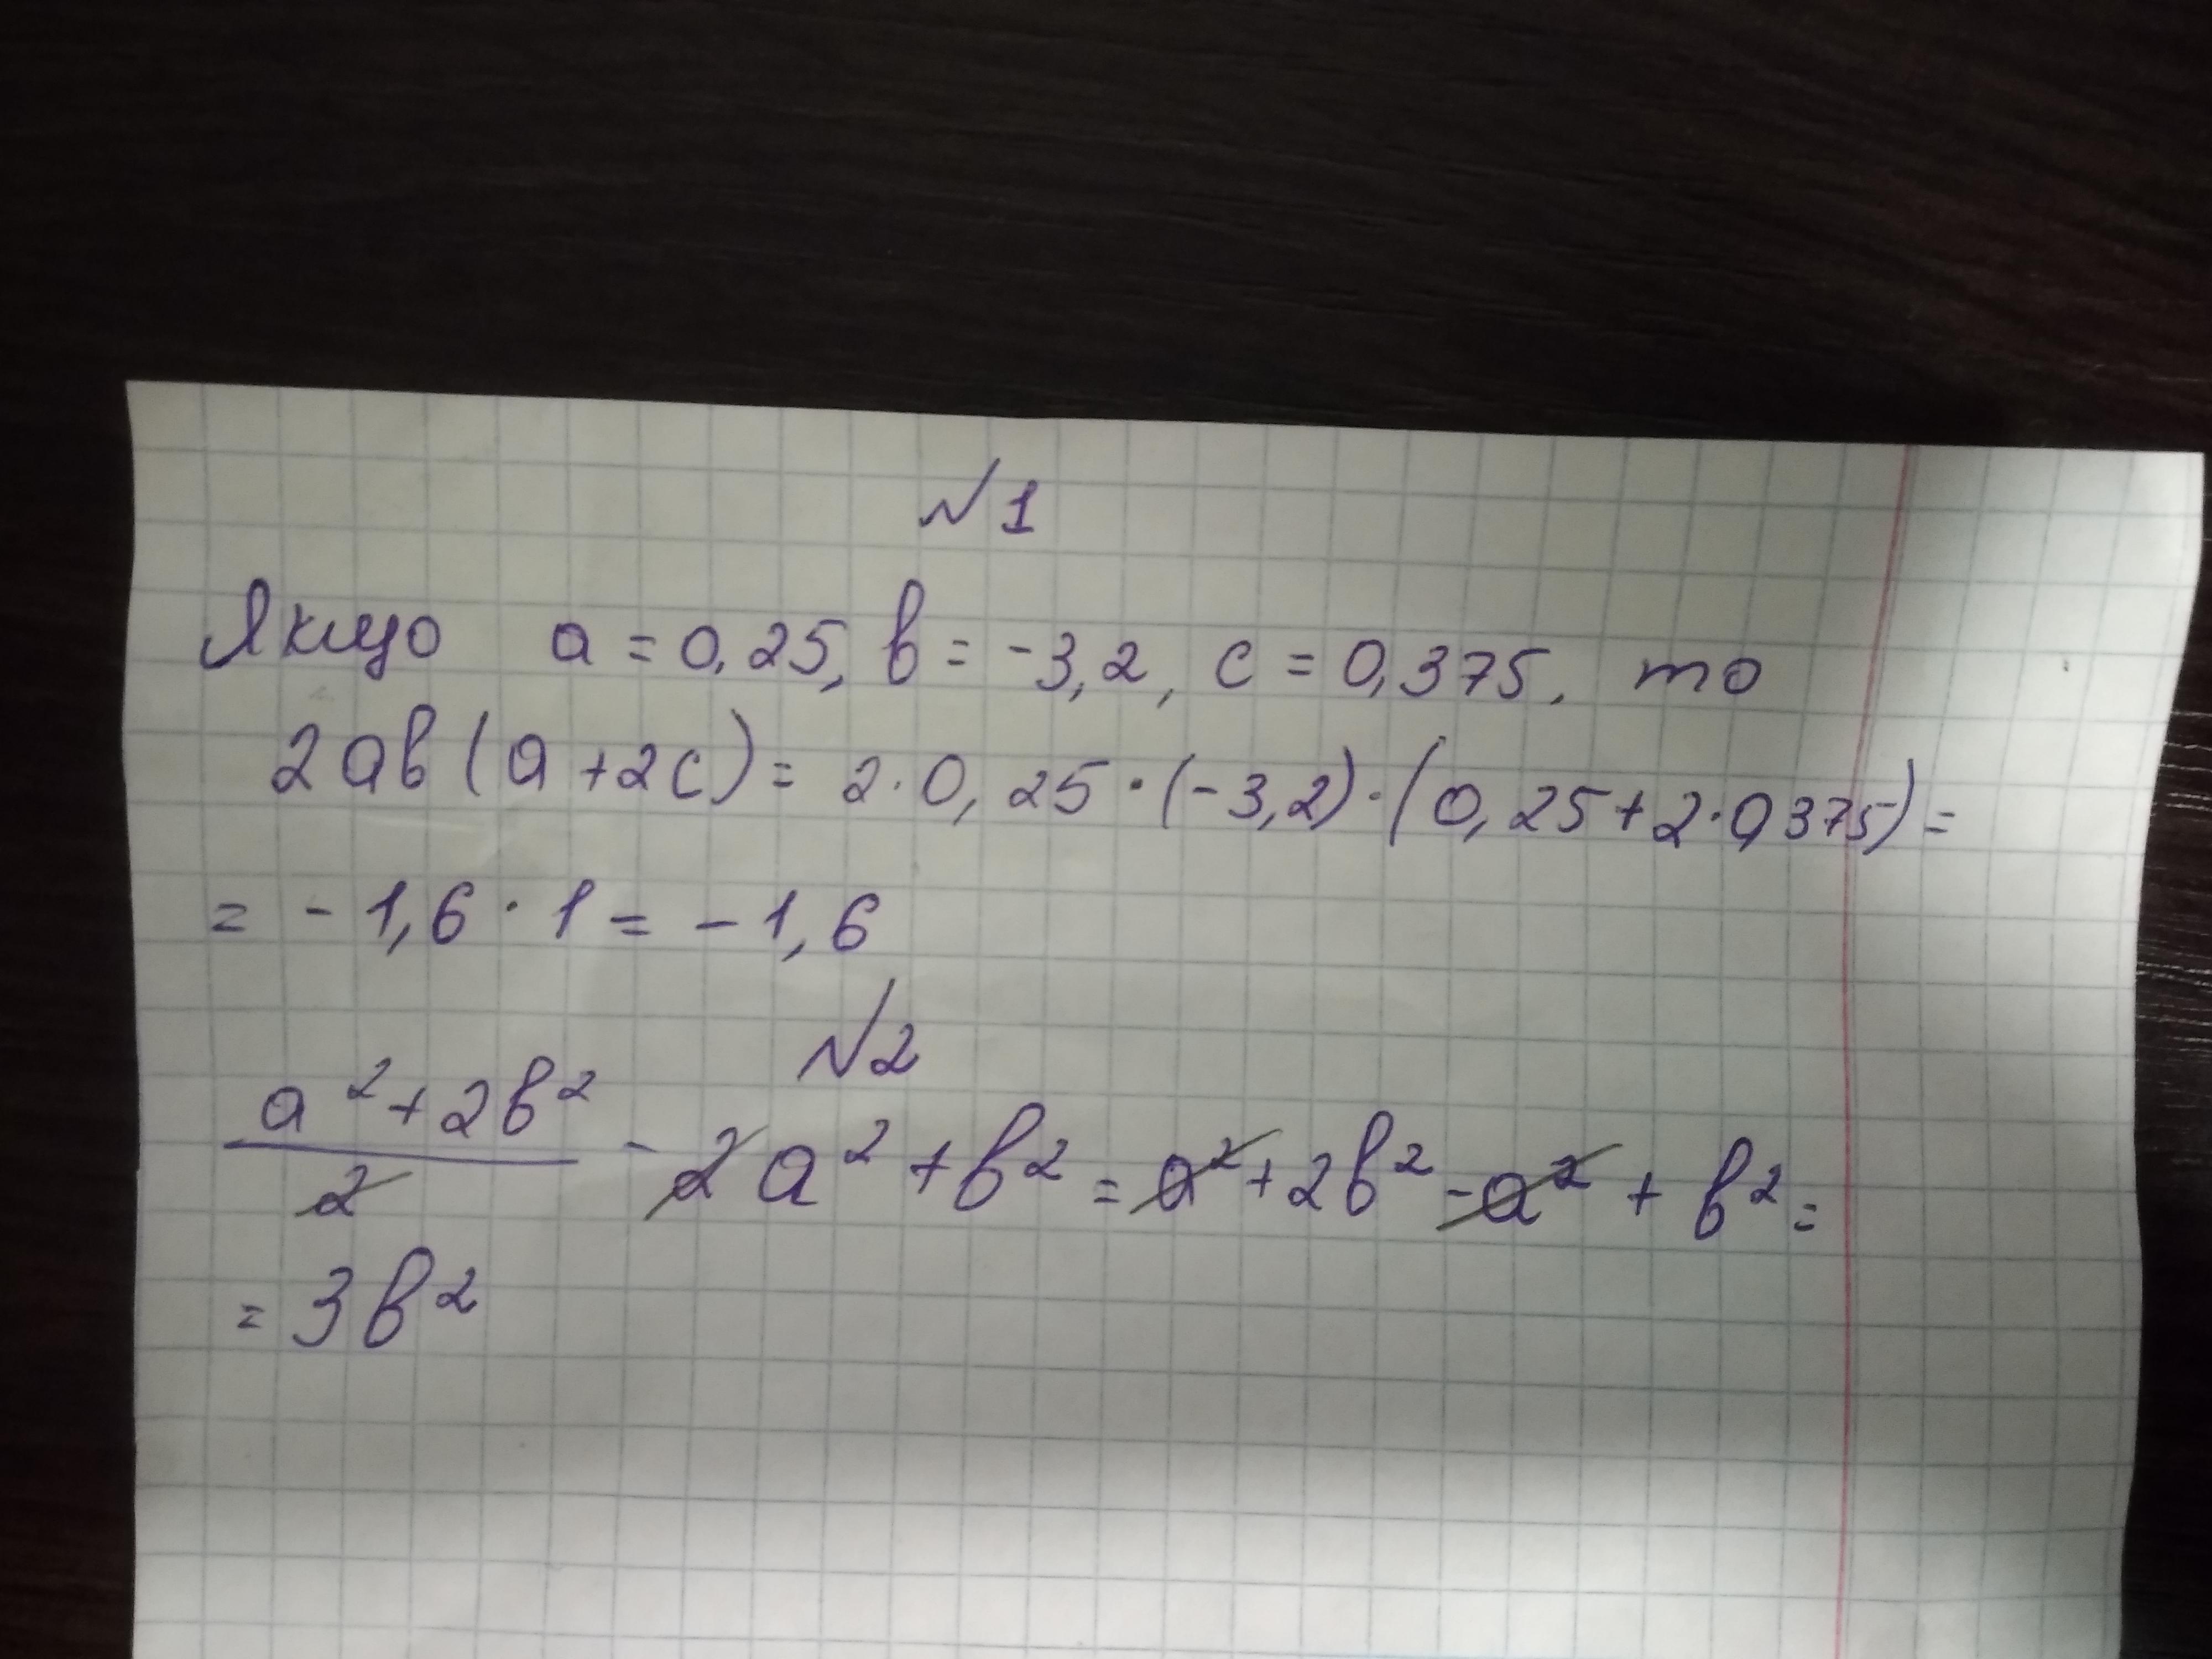 №1
Якщо a = 0,25, b = -3,2, c = 0,375, то
2ab(a+2c) = 2·0,25·(-3,2)·(0,25+2·0,375) =
= -1,6·1 = -1,6
№2
(a²+2b²)/2 - 2a²+b² = a²+2b²-a²+b² =
= 3b²